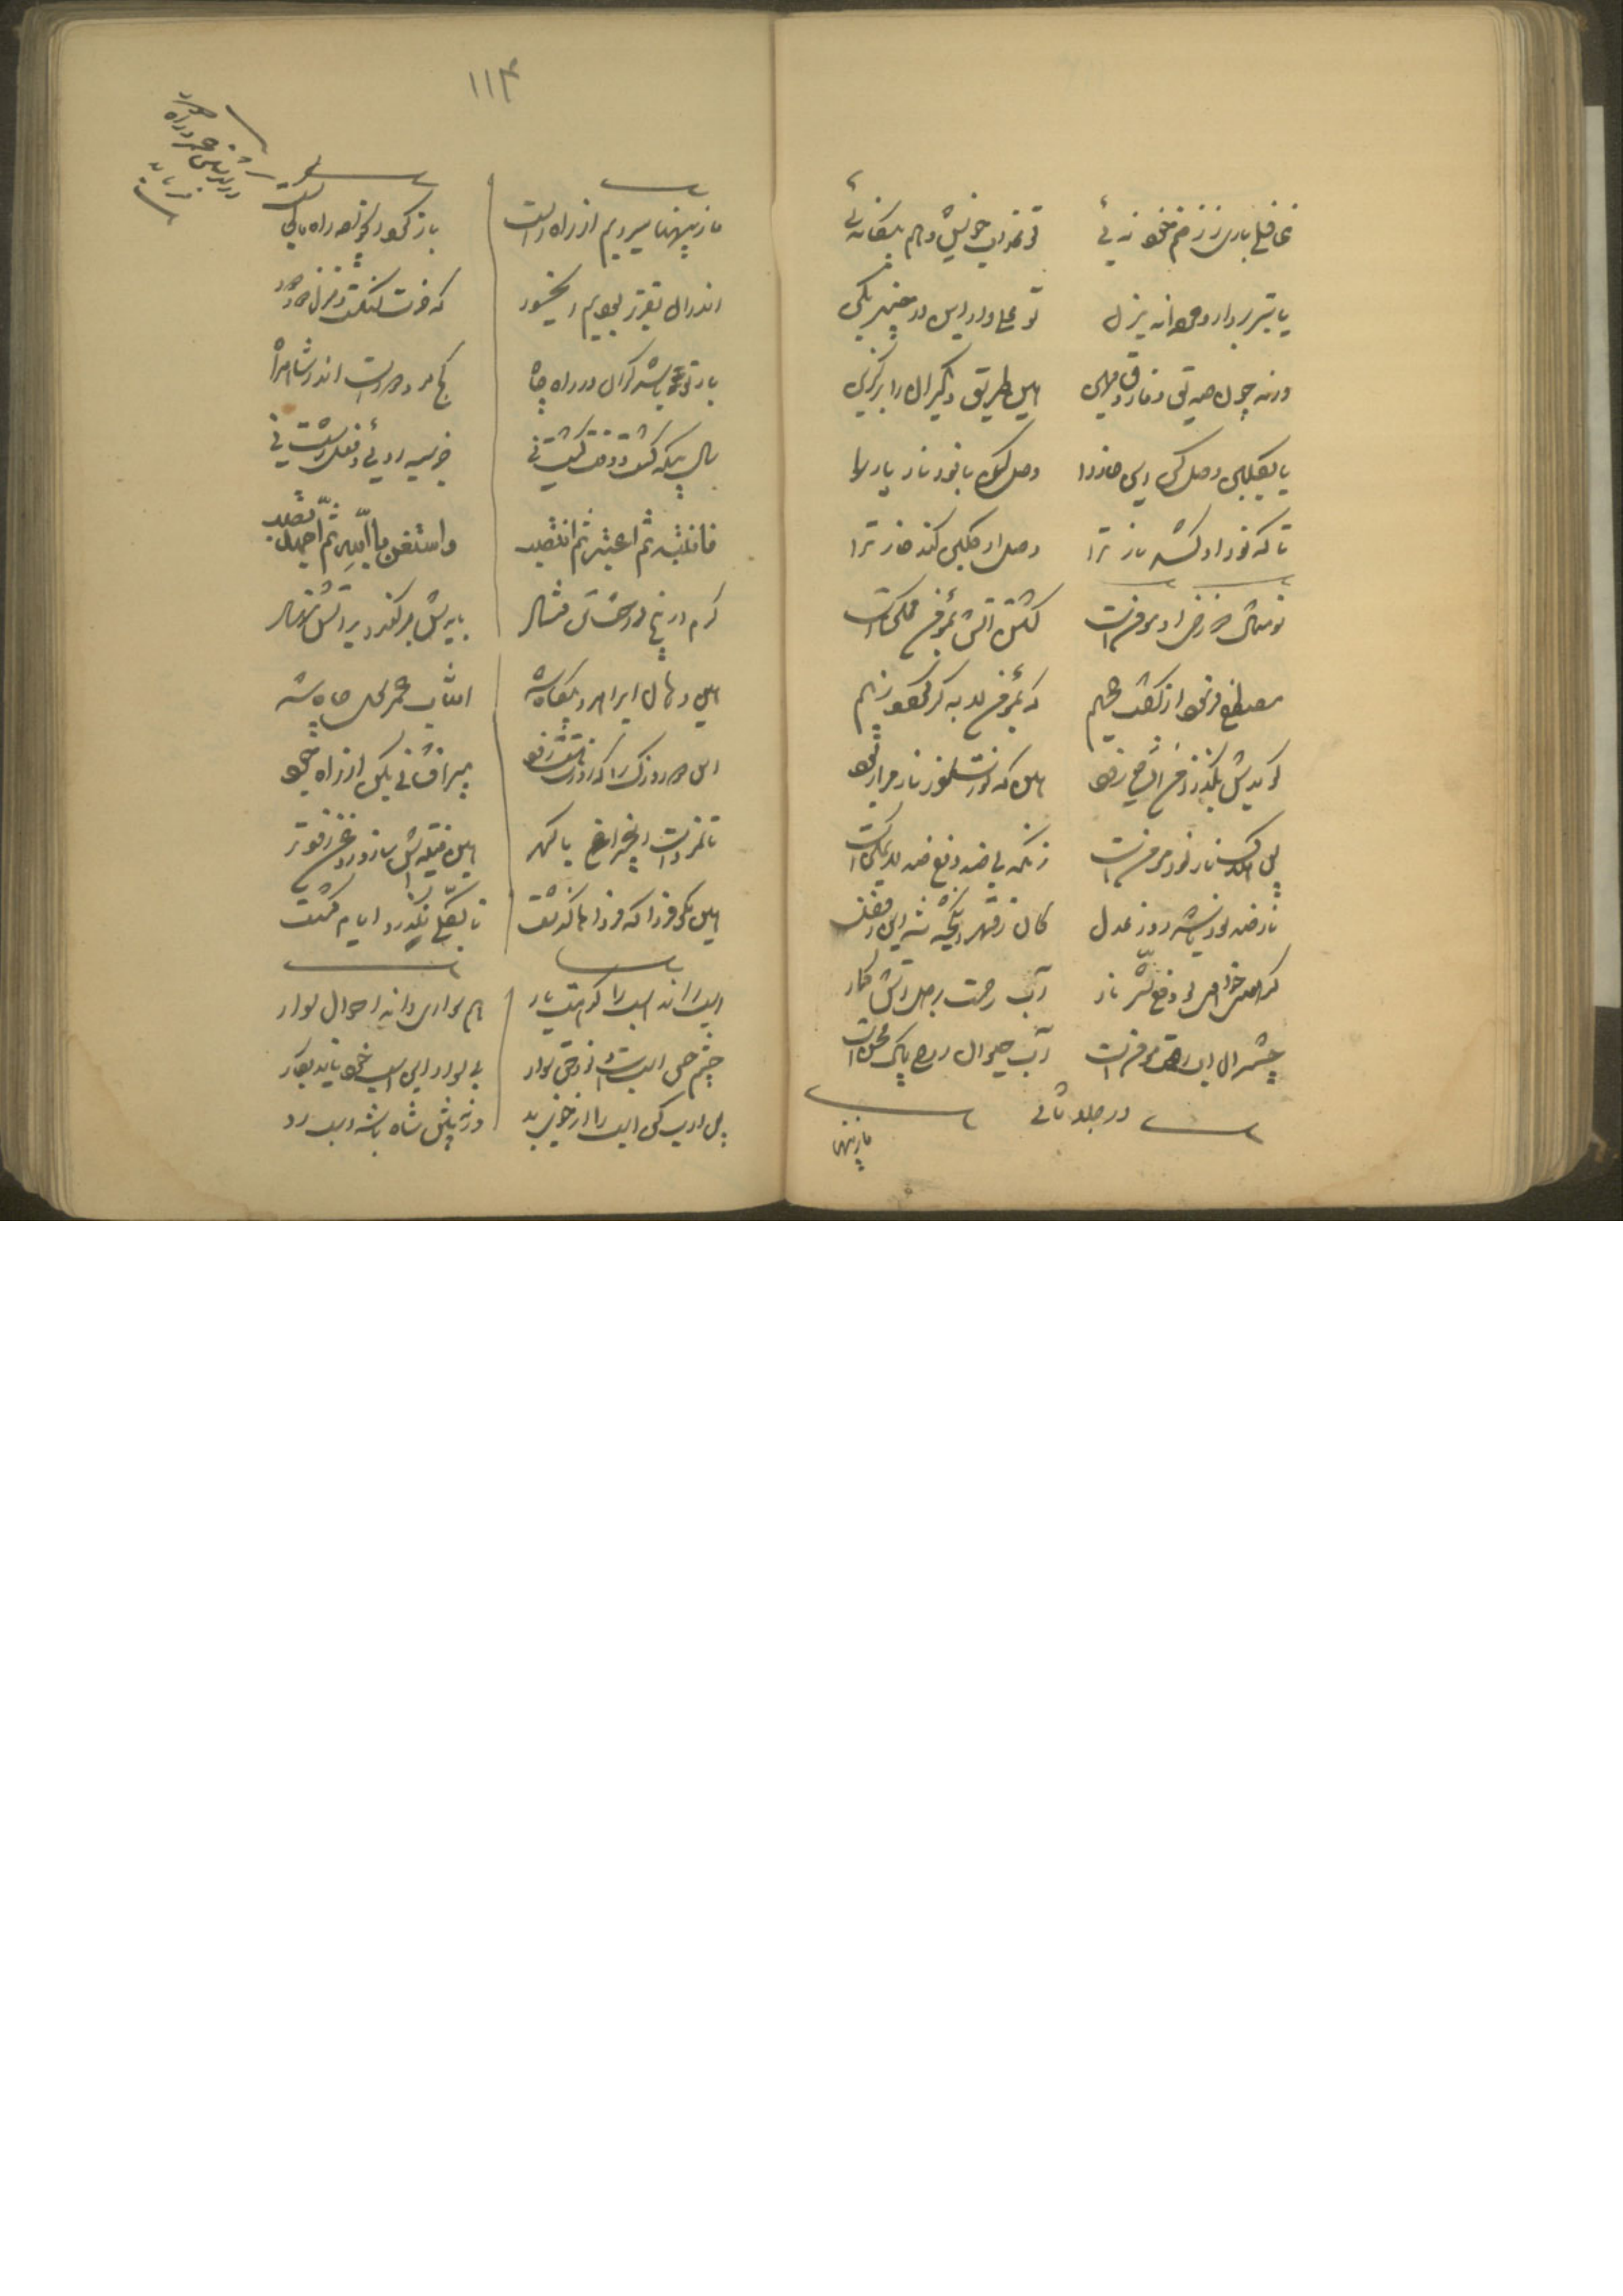 غافلی باری ز زخم خود نه ئی
تو عذاب خویش و هم بیگانه ئی
یا تبر بردار و مردانه بزن
تو علی وار این در خیبر بکن
ورنه چون صدیق و فاروق مهین
هین طریق دیگران را برگزین
یا بگلبن وصل کن این خار را
وصل کن با نور نار یار را
تا که نور او کشد نار ترا
وصل او گلبن کند خار ترا
تو مثال دوزخی او مؤمن است
کشتن آتش بمؤمن ممکن است
مصطفی فرمود از گفت جحیم
که بمؤمن لابه گر گردد ز بیم
گویدش بگذر ز من ای شاه زود
هین که نورت سوز نارم را ربود
پس هلاک نار نور مؤمن است
زانکه بی ضد دفع ضد لا یمکن است
نار ضد نور باشد روز عدل
کان ز قهر انگیخته شد این ز فضل
گر همی خواهی تو دفع شر نار
آب رحمت بر دل آتش گمار
چشمه آن آب رحمت مؤمن است
آب حیوان روح پاک محسن است
در جلد ثانی
باز پهنا
۱۱۴
باز پهنا میرویم از راه راست
باز گرد ای خواجه راه ما کجاست
اندر آن تقریر بودیم ای خسور
که خرت لنگ است و منزل دور
بار تو باشد گران در راه چاه
کج مرو رو راست اندر شاه راه
سال بیگه گشت وقت کشت نی
جز سیه روئی و فعل زشت نی
فانتبه ثم اعتبر ثم انتصب
واستعن بالله ثم اجهد تصب
کرم در بیخ درخت تن فتاد
بایدش بر کند و در آتش نهاد
هین و هین ای راه رو بیگاه شد
آفتاب عمر سوی چاه شد
این دو روزک را که زورت هست زود
پیر افشانی بکن از راه جود
تا نمرده است این چراغ با گهر
هین فتیله اش ساز و روغن زودتر
هین مگو فردا که فرداها گذشت
تا بکلی نگذرد ایام کشت
اسب را
هم سواری داند احوال سوار
چشم حس اسب است و نور حق سوار
بی سوار این اسب خود ناید بکار
پس ادب کن اسب را از خوی بد
ورنه پیش شاه باشد اسب رد